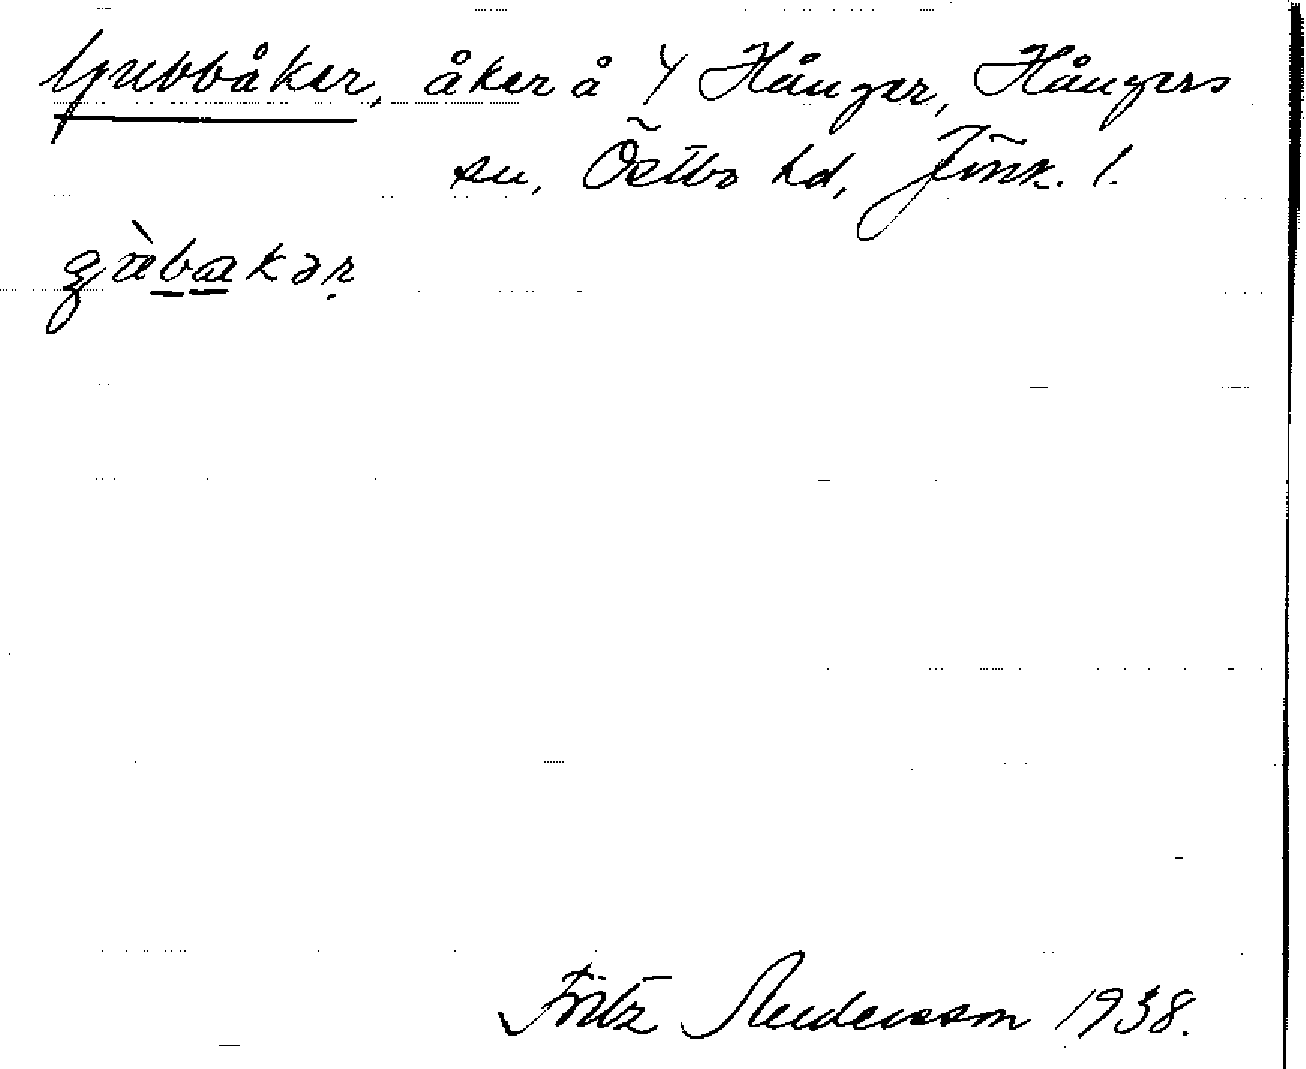 Gubbåker, åker å Y Hånger, Hångers
sn, Östbo hd, Jönk. l.
Fritz Andersson 1938.